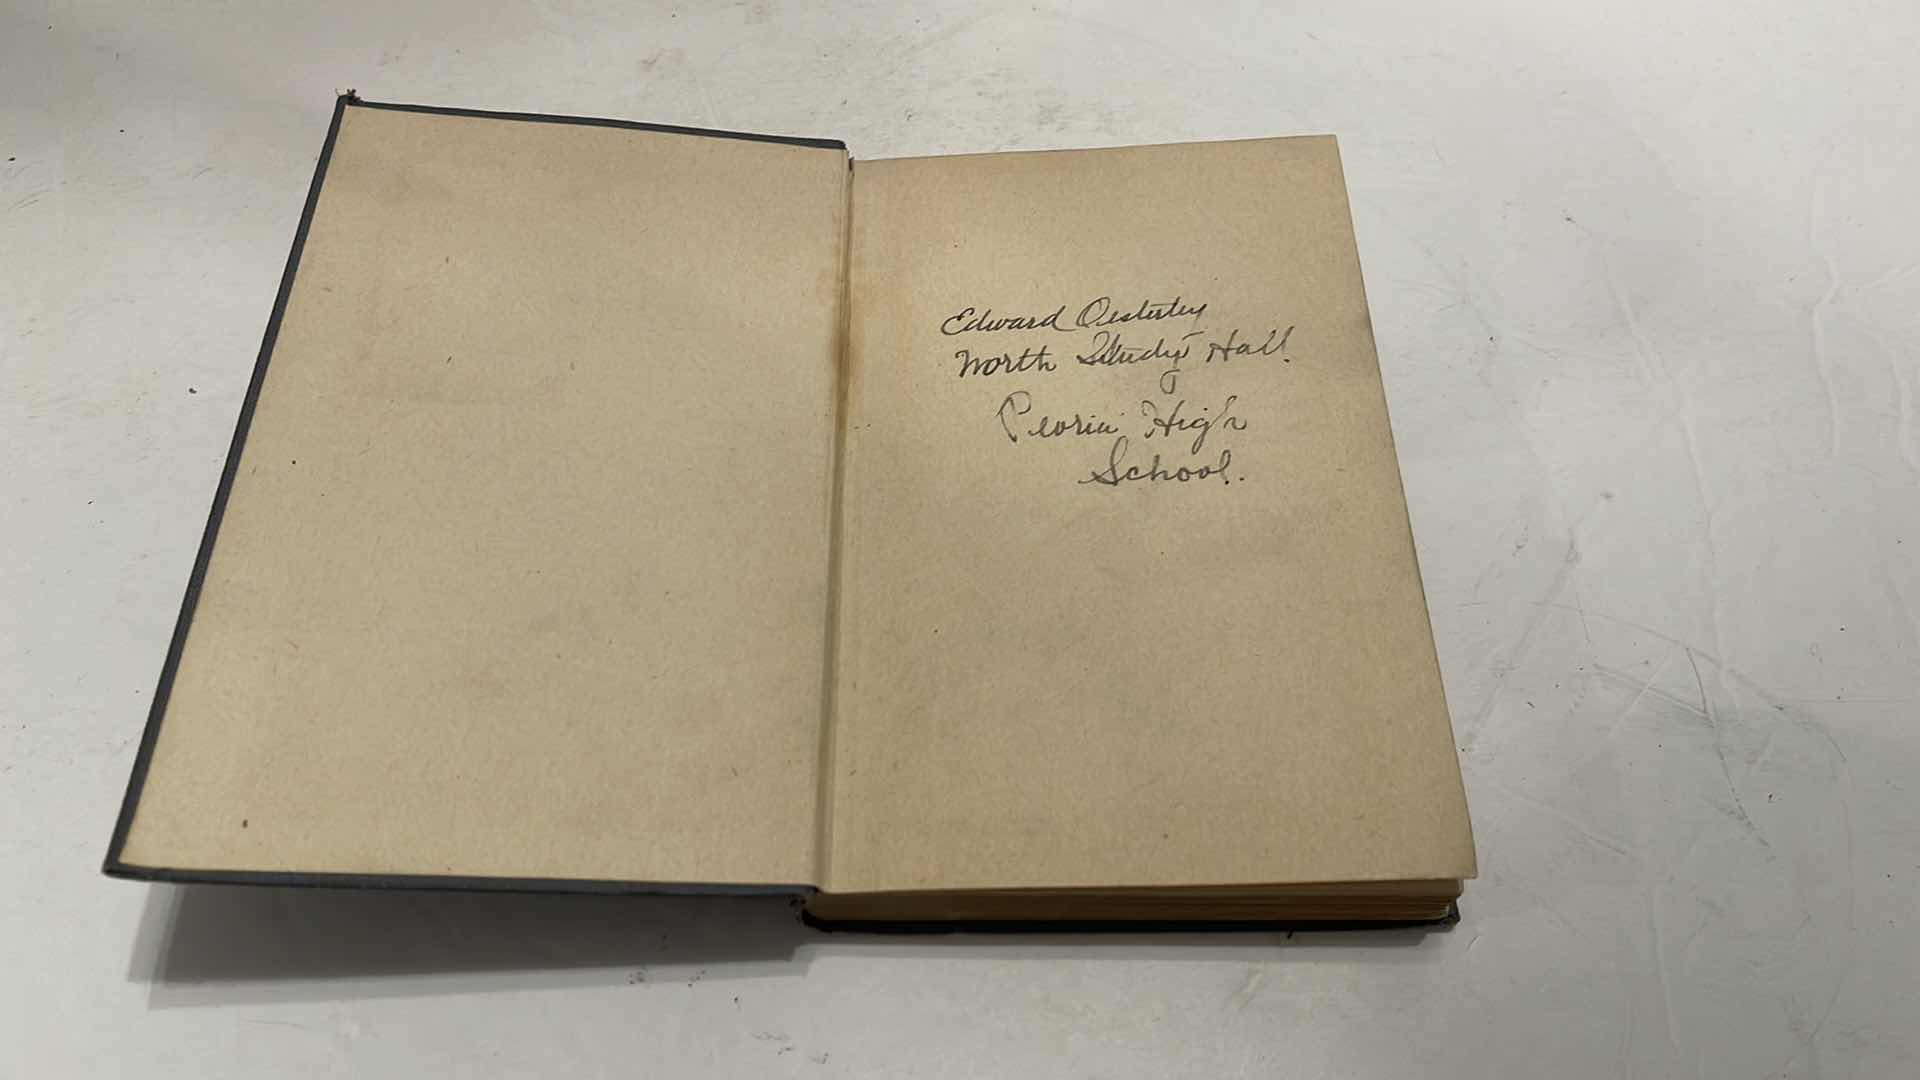 Edward Oesterley
North Study Hall.
Peoria High
School.